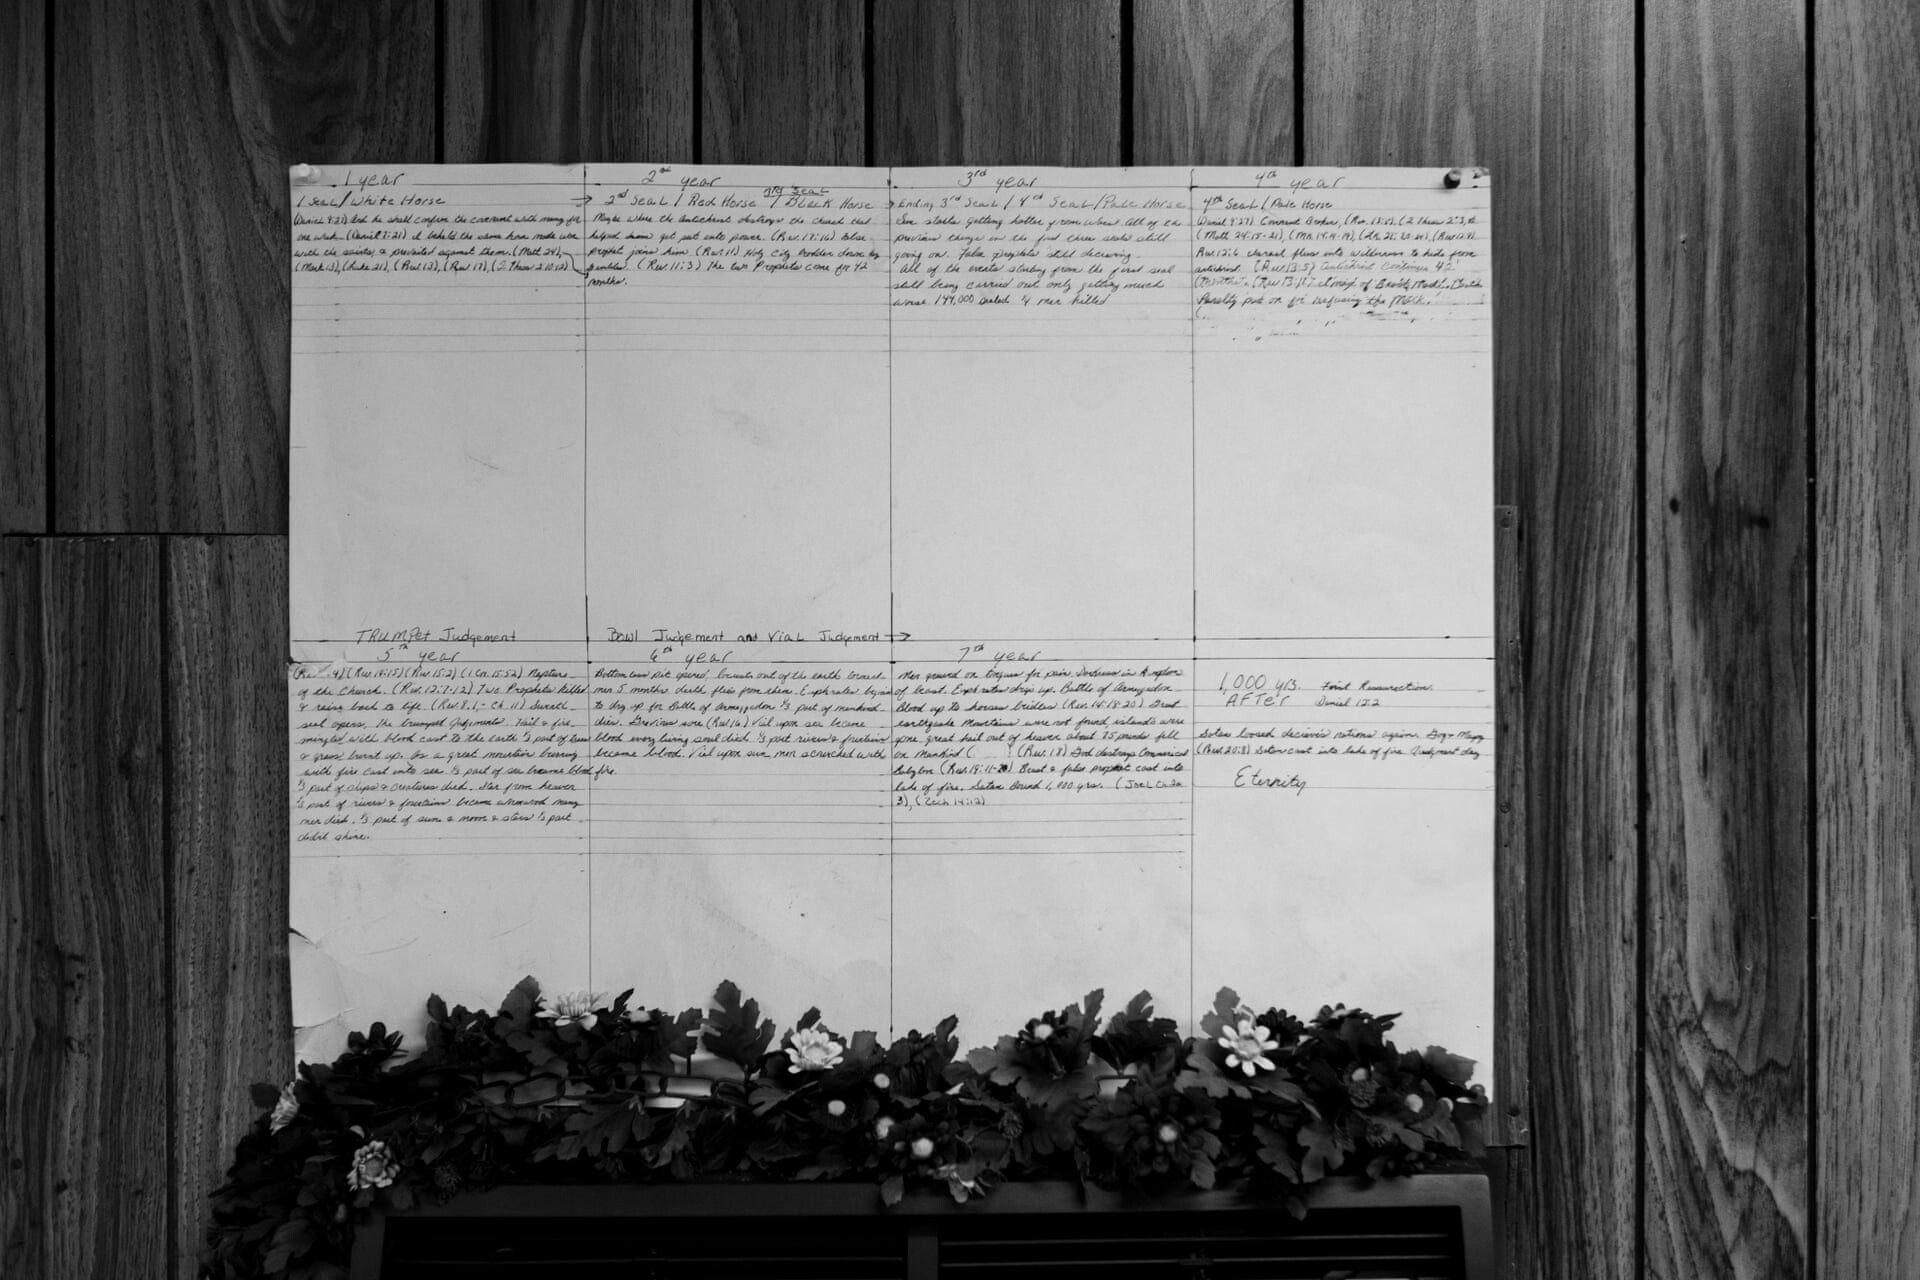 1 year
1 Seal / White Horse →
(Daniel 9:27) And he shall confirm the covenant with many for
one week. (Daniel 7:21) I beheld the same horn made war
with the saints, & prevailed against them. (Matt 24),
(Mark 13), (Luke 21), (Rev 13), (Rev 17), (2 Thess 2:10-12)
2nd year
3rd Seal
2nd Seal / Red Horse / Black Horse →
Maybe where the Antichrist destroys the church that
helped him get put into power. (Rev. 17:16) False
prophet joins him (Rev. 11) Holy City trodden down by
gentiles. (Rev. 11:3) The two Prophets come for 42
months.
3rd year
Ending 3rd Seal / 4th Seal / Pale Horse
getting hotter worse All of the
previous things in the first three seals still
going on. False prophets still deceiving.
All of the events starting from the first seal
still being carried out only getting much
worse. 144,000 sealed ¼ men killed
4th year
4th Seal / Pale Horse
(Daniel 9:27) Covenant Broken, (Rev. 13:5), (2 Thess 2:3,4)
(Matt 24:15-21), (Mk. 14:4-19), (Lk. 21:20-24), (Rev 12:9)
Rev. 12:6 Israel flees into wilderness to hide from
antichrist. (Rev 13:5) Antichrist continues 42
months. (Rev 13:11) Image of Beast Made. Death
Penalty put on for refusing the Mark.
TRUMPet Judgement
5th year
(Rev 14:15) (Rev 15:2) (1 Cor. 15:52) Rapture
of the Church. (Rev. 12:7-12) Two Prophets killed
& raise back to life. (Rev 8:1, - Ch. 11) Seventh
seal opens, the trumpet Judgements. Hail & fire
mingled with blood cast to the earth ⅓ part of trees
& grass burnt up. As a great mountain burning
with fire cast into sea ⅓ part of sea became blood
⅓ part of ships & creatures died. Star from heaven
⅓ part of rivers & fountains became wormwood many
men died. ⅓ part of sun & moon & stars ⅓ part
didn't shine.
Bowl Judgement and Vial Judgement →
6th year
Bottomless pit opened, locusts out of the earth torment
men 5 months death flees from them. Euphrates begins
to dry up for Battle of Armageddon ⅓ part of mankind
dies. Grevious sore (Rev 16) Vial upon sea became
blood every living soul died. ⅓ part rivers & fountains
became blood. Vial upon sun men scorched with
fire.
7th year
Men gnawed on tongues for pain, Darkness in kingdom
of beast. Euphrates drys up. Battle of Armageddon
Blood up to horses bridles (Rev. 14:18-20) Great
earthquake Mountains were not found islands were
gone, great hail out of heaven about 75 pounds fell
on Mankind (Rev. 18) God destroys Commercial
Babylon (Rev. 19:11-20) Beast & false prophet cast into
lake of fire. Satan Bound 1,000 yrs. (Joel
3), (Zech 14:12)
1,000 yrs. First Resurrection
AFTer Daniel 12:2
Satan loosed deceives nations again. Gog & Magog
(Rev. 20:8) Satan cast into lake of fire. Judgment day
Eternity